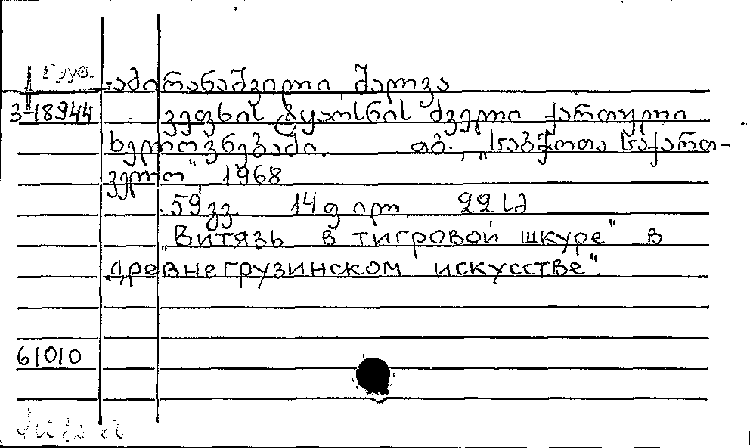 Груз. ამირანაშვილი შალვა
3-18944 ვეფხის ტყაოსნის ძველი ქართული
ხელოვნებაში. თბ., „საბჭოთა საქართ-
ველო", 1968
59 გვ. 14 ფ ილ. 22 სმ
"Витязь в тигровой шкуре" в
древнегрузинском искусстве".
61010